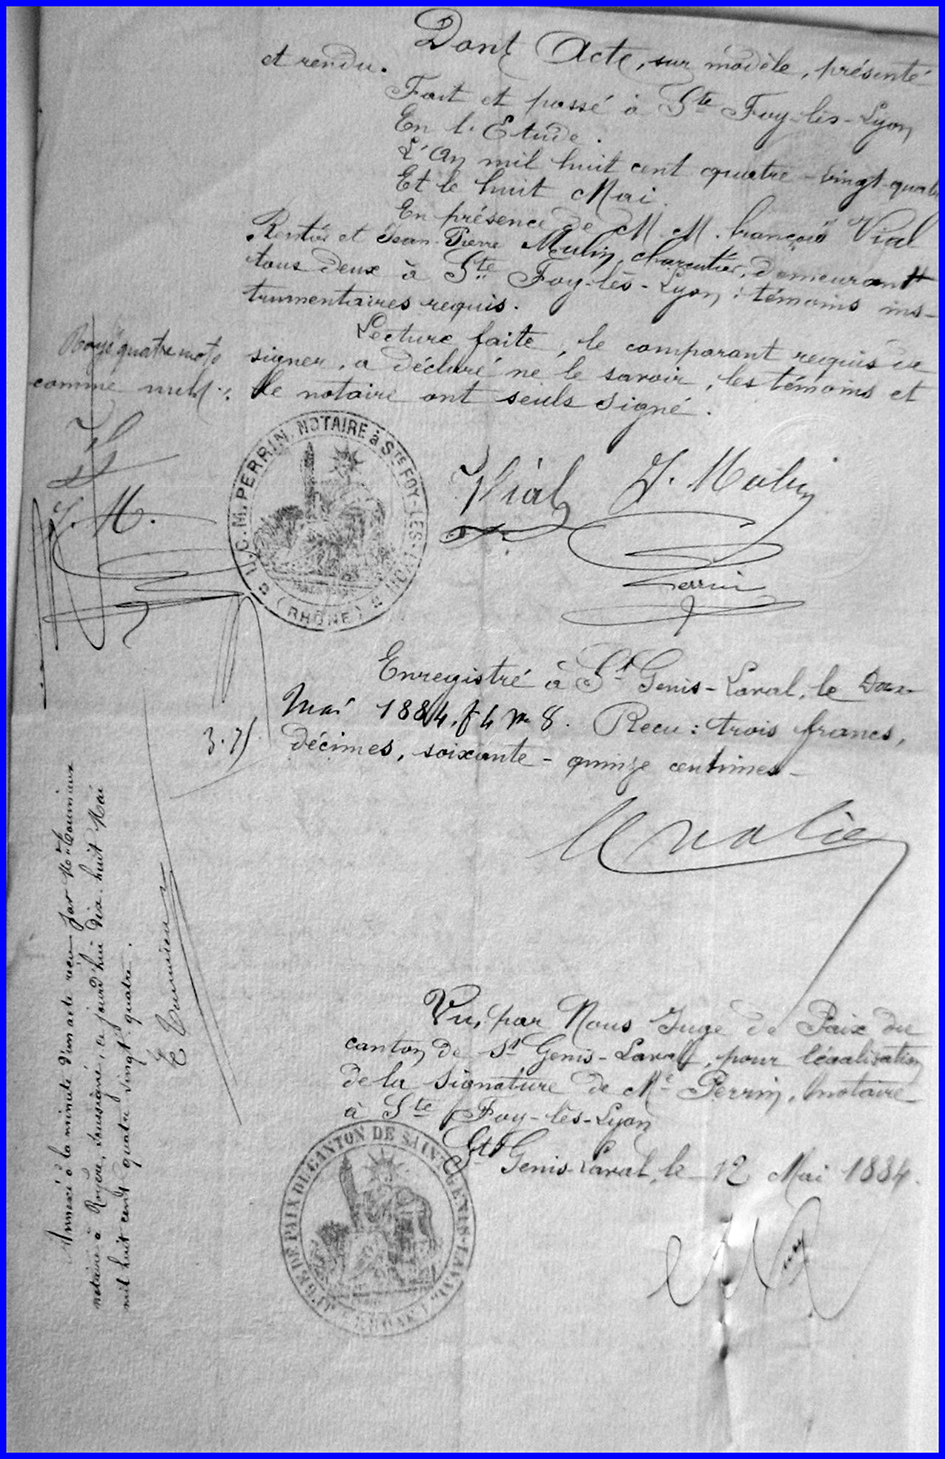 Dont Acte, sur modèle, présenté
et rendu.
Fait et passé à Ste Foy-lès-Lyon
En l'Etude.
L'An mil huit cent quatre-vingt-quatre
Et le huit Mai.
En présence de M.M. François Vial
Rentier et Jean-Pierre Mulin, charcutier, demeurant
tous deux à Ste Foy-lès-Lyon; témoins ins-
trumentaires requis.
Lecture faite, le comparant requis de
signer, a déclaré ne le savoir, les témoins et
le notaire ont seuls signé.
Rayé quatre mots
comme nuls.
J. M.
U. C. M. PERRIN, NOTAIRE à STE FOY-LES-LYON
(RHÔNE)
Vial J. Mulin
Perrin
Enregistré à St Genis-Laval, le Douze
Mai 1884, f 4 8. Recu: trois francs,
décimes, soixante-quinze centimes-
3.75
Annexé à la minute d'un acte reçu par Me
notaire à soussigné, ce jourd'hui dix-huit Mai
mil huit cent quatre vingt quatre.
Vu, par Nous Juge de Paix du
canton de St Genis-Laval, pour légalisation
de la signature de Me Perrin, notaire
à Ste Foy-lès-Lyon
St Genis-Laval, le 12 Mai 1884.
JUGE DE PAIX DU CANTON DE SAINT-GENIS-LAVAL
(RHÔNE)